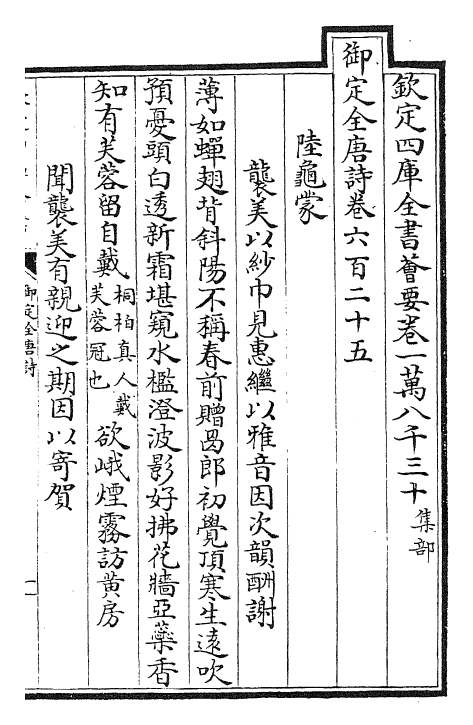 欽定四庫全書薈要卷一萬八千三十 集部
御定全唐詩卷六百二十五
陸龜蒙
襲美以紗巾見惠繼以雅音因次韻酬謝
薄如蟬翅背斜陽不稱春前贈曷郎初覺頂寒生逺吹
預憂頭白透新霜堪窺水檻澄波影好拂花牆亞蘂香
知有芙蓉留自戴 桐柏真人戴芙蓉冠也 欲峨煙霧訪黄房
聞襲美有親迎之期因以寄賀
御定全唐詩
一